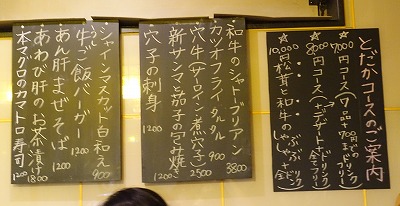 とだかコースのご案内
☆7000円コース(7品+700円までの1ドリンク)
☆8000円コース(+デザート+1ドリンク+全てフリー)
☆10,000円松茸と和牛のしゃぶしゃぶ
和牛のシャトーブリアン 3800
カツオフライタルタル 900
穴牛(サーロイン煮穴子) 2500
新サンマと茄子のごみ焼き 1200
穴子の刺身 1200
シャインマスカット白和え 900
牛ご飯バーガー 1200
あん肝まぜそば 1200
あわび肝のお茶漬け 1800
本マグロのカマトロ寿司 1200